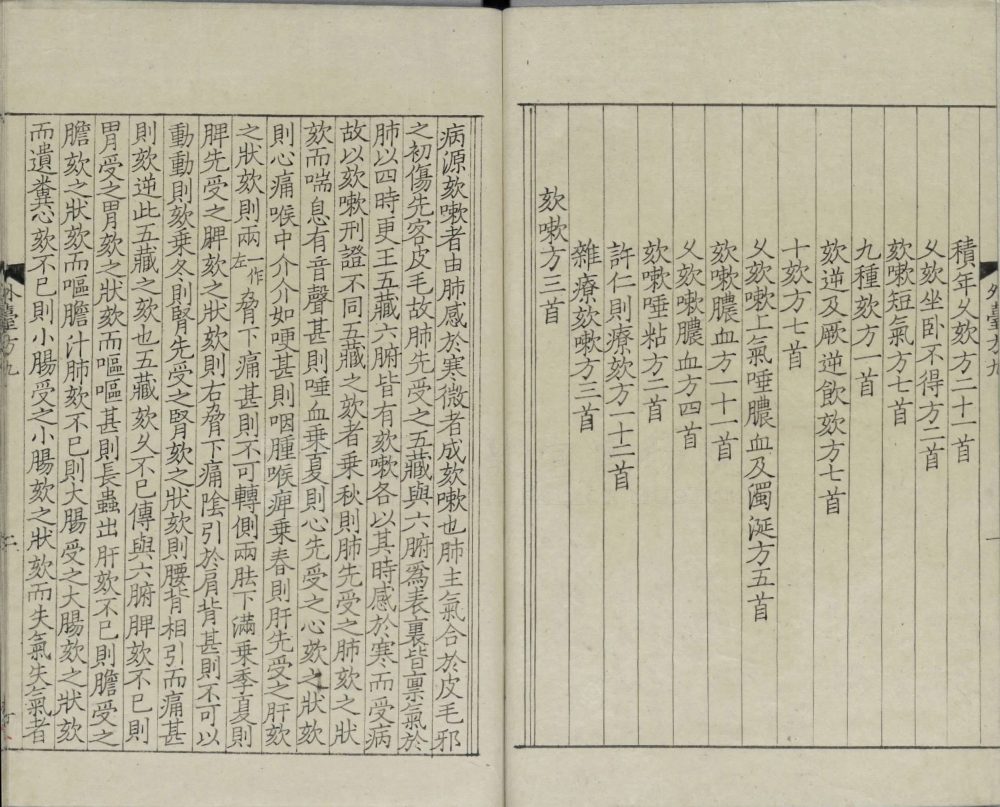 積年乆欬方二十一首
乆欬坐卧不得方二首
欬嗽短氣方七首
九種欬方一首
欬逆及厥逆飲欬方七首
十欬方七首
乆欬嗽上氣唾膿血及濁涎方五首
欬嗽膿血方一十一首
乆欬嗽膿血方四首
欬嗽唾粘方二首
許仁則療欬方一十二首
雜療欬嗽方三首
欬嗽方三首
病源欬嗽者由肺感於寒微者成欬嗽也肺主氣合於皮毛邪
之初傷先客皮毛故肺先受之五藏與六腑爲表裏皆禀氣於
肺以四時更王五藏六腑皆有欬嗽各以其時感於寒而受病
故以欬嗽刑證不同五藏之欬者乗秋則肺先受之肺欬之狀
欬而喘息有音聲甚則唾血乗夏則心先受之心欬之狀欬
則心痛喉中介介如哽甚則咽腫喉痺乗春則肝先受之肝欬
之狀欬則兩一作左脅下痛甚則不可轉側兩胠下滿乗季夏則
脾先受之脾欬之狀欬則右脅下痛陰引於肩背甚則不可以
動動則欬乗冬則腎先受之腎欬之狀欬則腰背相引而痛甚
則欬逆此五藏之欬也五藏欬乆不已傳與六腑脾欬不已則
胃受之胃欬之狀欬而嘔嘔甚則長蟲出肝欬不已則膽受之
膽欬之狀欬而嘔膽汁肺欬不已則大腸受之大腸欬之狀欬
而遺糞心欬不已則小腸受之小腸欬之狀欬而失氣失氣者
外臺方九
二